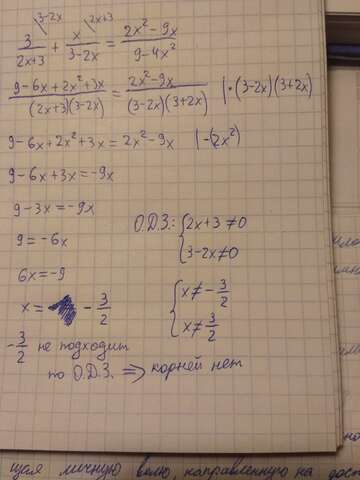 3-2x 2x+3
3/(2x+3) + x/(3-2x) = (2x²-9x)/(9-4x²)
(9-6x+2x²+3x)/((2x+3)(3-2x)) = (2x²-9x)/((3-2x)(3+2x)) |·(3-2x)(3+2x)
9-6x+2x²+3x = 2x²-9x |-(2x²)
9-6x+3x=-9x
9-3x=-9x
9=-6x
6x=-9
x= -3/2
О.Д.З.: { 2x+3≠0
3-2x≠0
{ x≠-3/2
x≠3/2
-3/2 не подходит
по О.Д.З. ⇒ корней нет
щая личную волю, направленную на дост